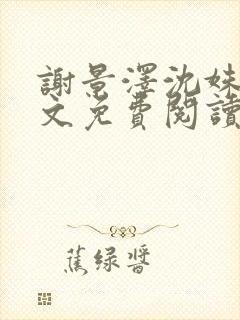 謝景澤沈妹
文免費閱讀
蕉绿醬